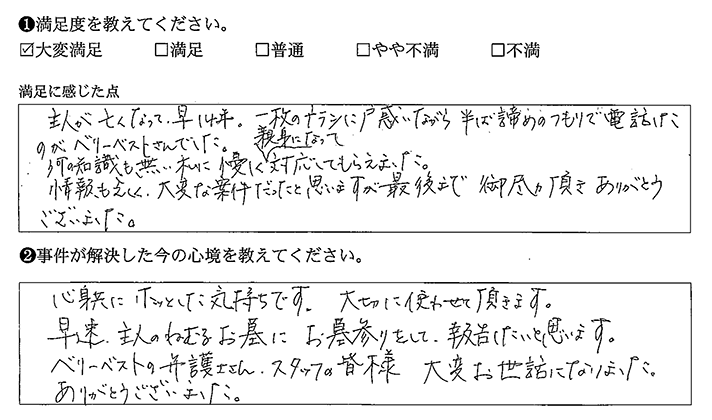 ❶満足度を教えてください。
☑大変満足 □満足 □普通 □やや不満 □不満
満足に感じた点
主人が亡くなって、早14年。一枚のチラシに戸惑いながら 半ば諦めのつもりで電話したこ
のが ベリーベストさんでした。
親身になって
何の知識も無い私に優しく対応してもらえました。
情報も乏しく、大変な案件だったと思いますが最後まで 御尽力頂き ありがとう
ございました。
❷事件が解決した今の心境を教えてください。
心身共に ホッとした気持ちです。 大切に使わせて頂きます。
早速、主人のねむるお墓に お墓参りをして、報告したいと思います。
ベリーベストの弁護士さん、スタッフの皆様 大変お世話になりました。
ありがとうございました。